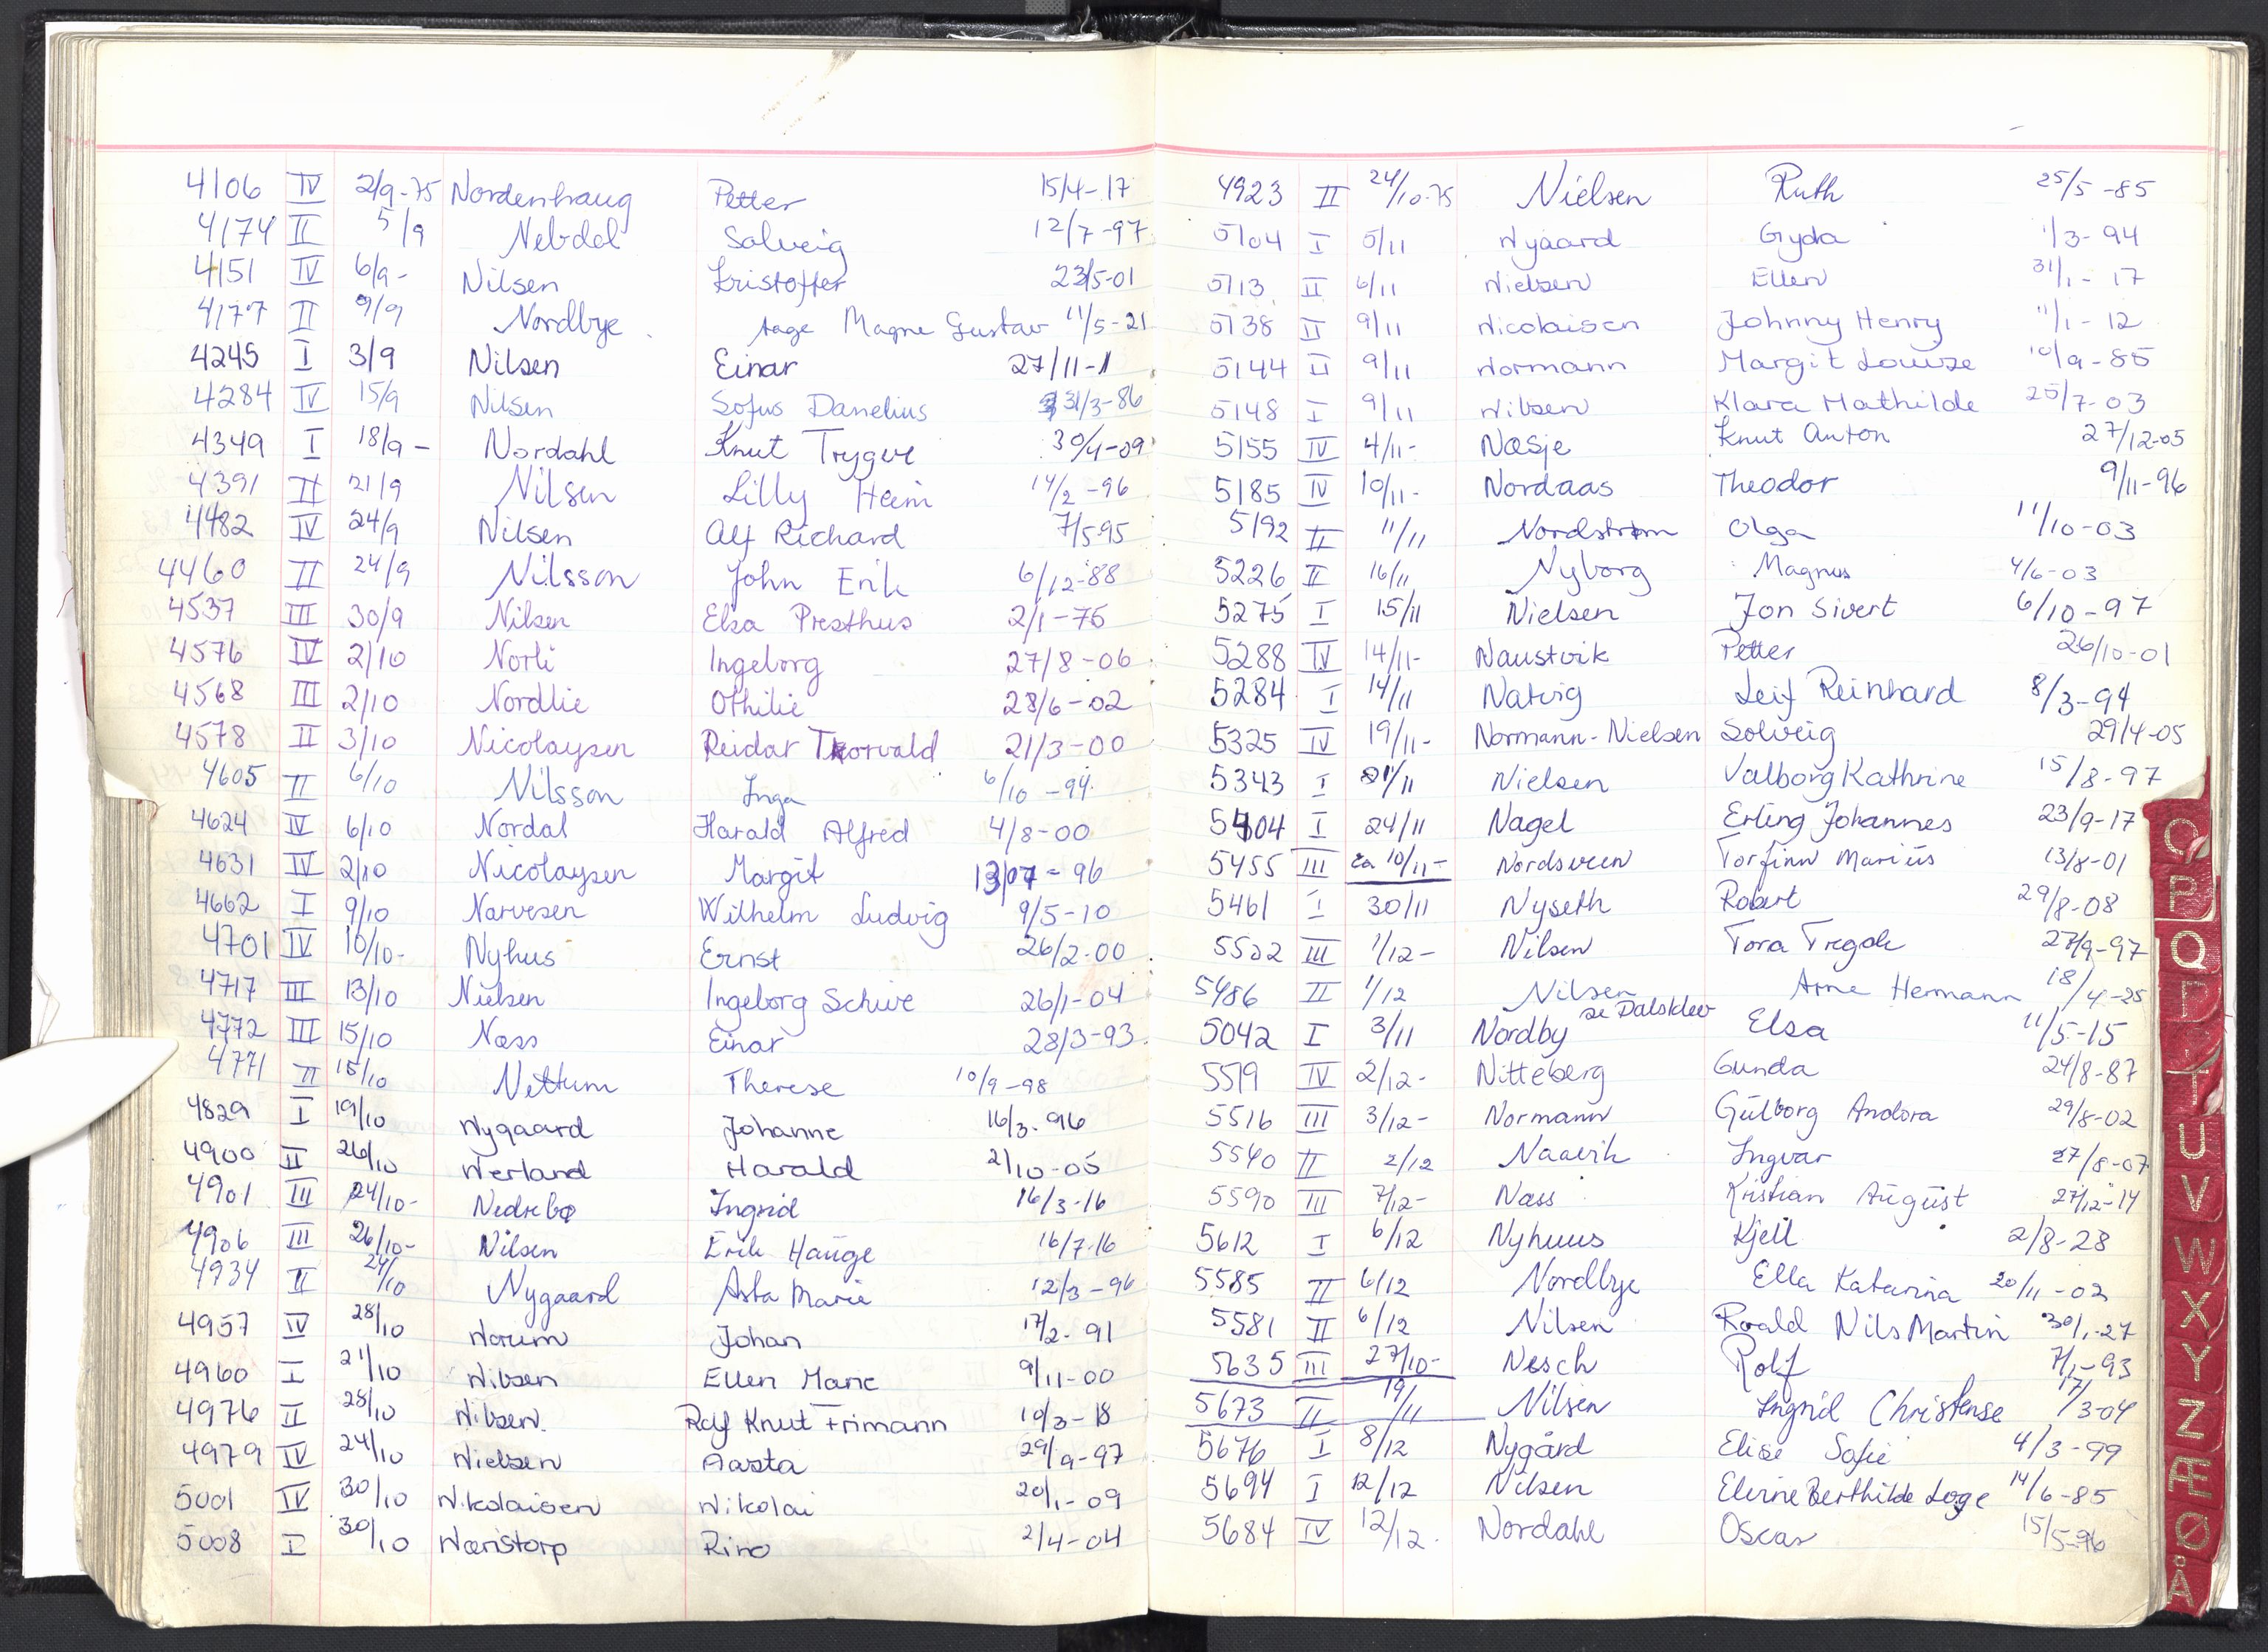 4106 IV 2/9-75 Nordenhaug Petter 15/4-17
4174 II 5/9 Nebdal Solveig 12/7-97
4151 IV 6/9- Nilsen Kristoffer 23/5-01
4177 II 9/9 Nordbye Aage Magne Gustav 11/5-21
4245 I 3/9 Nilsen Einar 27/11-1
4284 IV 15/9 Nilsen Sofus Danelius 31/3-86
4349 I 18/9- Nordahl Knut Trygve 30/4-09
4391 II 21/9 Nilsen Lilly Heim 14/2-96
4482 IV 24/9 Nilsen Alf Richard 7/5 95
4460 II 24/9 Nilsson John Erik 6/12-88
4537 III 30/9 Nilsen Elsa Presthus 2/1-75
4576 IV 2/10 Norli Ingeborg 27/8-06
4568 III 2/10 Nordlie Othilie 28/6-02
4578 II 3/10 Nicolaysen Reidar Thorvald 21/3-00
4605 II 6/10 Nilsson Inga 6/10-94
4624 IV 6/10 Nordal Harald Alfred 4/8-00
4631 IV 2/10 Nicolaysen Margit 13/07-96
4662 I 9/10 Narvesen Wilhelm Ludvig 9/5-10
4701 IV 10/10- Nyhus Ernst 26/2-00
4717 III 13/10 Nielsen Ingeborg Schive 26/1-04
4772 III 15/10 Næss Einar 28/3-93
4771 II 15/10 Nettum Therese 10/9-98
4829 I 19/10 Nygaard Johanne 16/3-96
4900 II 26/10 Nerland Harald 2/10-05
4901 III 24/10- Nedrebø Ingrid 16/3-16
4906 III 26/10- Nilsen Erik Hauge 16/7-16
4934 II 24/10 Nygaard Asta Marie 12/3-96
4957 IV 28/10 Norum Johan 17/2-91
4960 I 21/10 Nilsen Ellen Marie 9/11-00
4976 II 28/10 Nilsen Rolf Knut Frimann 10/3-18
4979 IV 24/10 Nielsen Aasta 29/9-97
5001 IV 30/10 Nikolaisen Nikolai 20/1-09
5008 I 30/10 Næristorp Rino 2/4-04
4923 II 24/10-75 Nielsen Ruth 25/5-85
5104 I 5/11 Nyaard Gyda 1/3-94
5113 II 6/11 Nielsen Ellen 31/1-17
5138 II 9/11 Nicolaisen Johnny Henry 11/1-12
5144 II 9/11 Normann Margit Louise 10/9-85
5148 I 9/11 Nilsen Klara Mathilde 25/7-03
5155 IV 4/11- Næsje Knut Anton 27/12-05
5185 IV 10/11- Nordaas Theodor 9/11-96
5192 II 11/11 Nordstrøm Olga 11/10-03
5226 II 16/11 Nyborg Magnus 4/6-03
5275 I 15/11 Nielsen Jon Sivert 6/10-97
5288 IV 14/11- Naustvik Petter 26/10-01
5284 I 14/11 Natvig Leif Reinhard 8/3-94
5325 IV 19/11- Normann-Nielsen Solveig 29/4-05
5343 I 21/11 Nielsen Valborg Kathrine 15/8-97
5404 I 24/11 Nagel Erling Johannes 23/9-17
5455 III ca 10/11- Nordsveen Torfinn Marius 13/8-01
5461 I 30/11 Nyseth Robert 29/8-08
5522 III 1/12- Nilsen Tora 27/9-97
5486 II 1/12 Nilsen Arne Hermann 18/4-25
se Dalsklev
5042 I 3/11 Nordby Elsa 11/5-15
5519 IV 2/12- Nitteberg Gunda 24/8-87
5516 III 3/12- Normann Gulborg Andora 29/8-02
5540 II 2/12 Naavik Ingvar 27/8-07
5590 III 7/12- Næss Kristian August 27/12-14
5612 I 6/12 Nyhuus Kjell 2/8-28
5585 II 6/12 Nordbye Ella Katarina 20/11-02
5581 II 6/12 Nilsen Roald Nils Martin 30/1-27
5635 III 27/10- Nesch Rolf 7/1-93
5673 II 19/11 Nilsen Ingrid Christense 17/3-04
5676 I 8/12 Nygård Elise Sofie 4/3-99
5694 I 12/12 Nilsen Elvine Berthilde Loge 14/6-85
5684 IV 12/12. Nordahl Oscar 15/5-96
O
P
Q
R
T
U
V
W
X
Y
Z
Æ
Ø
Å